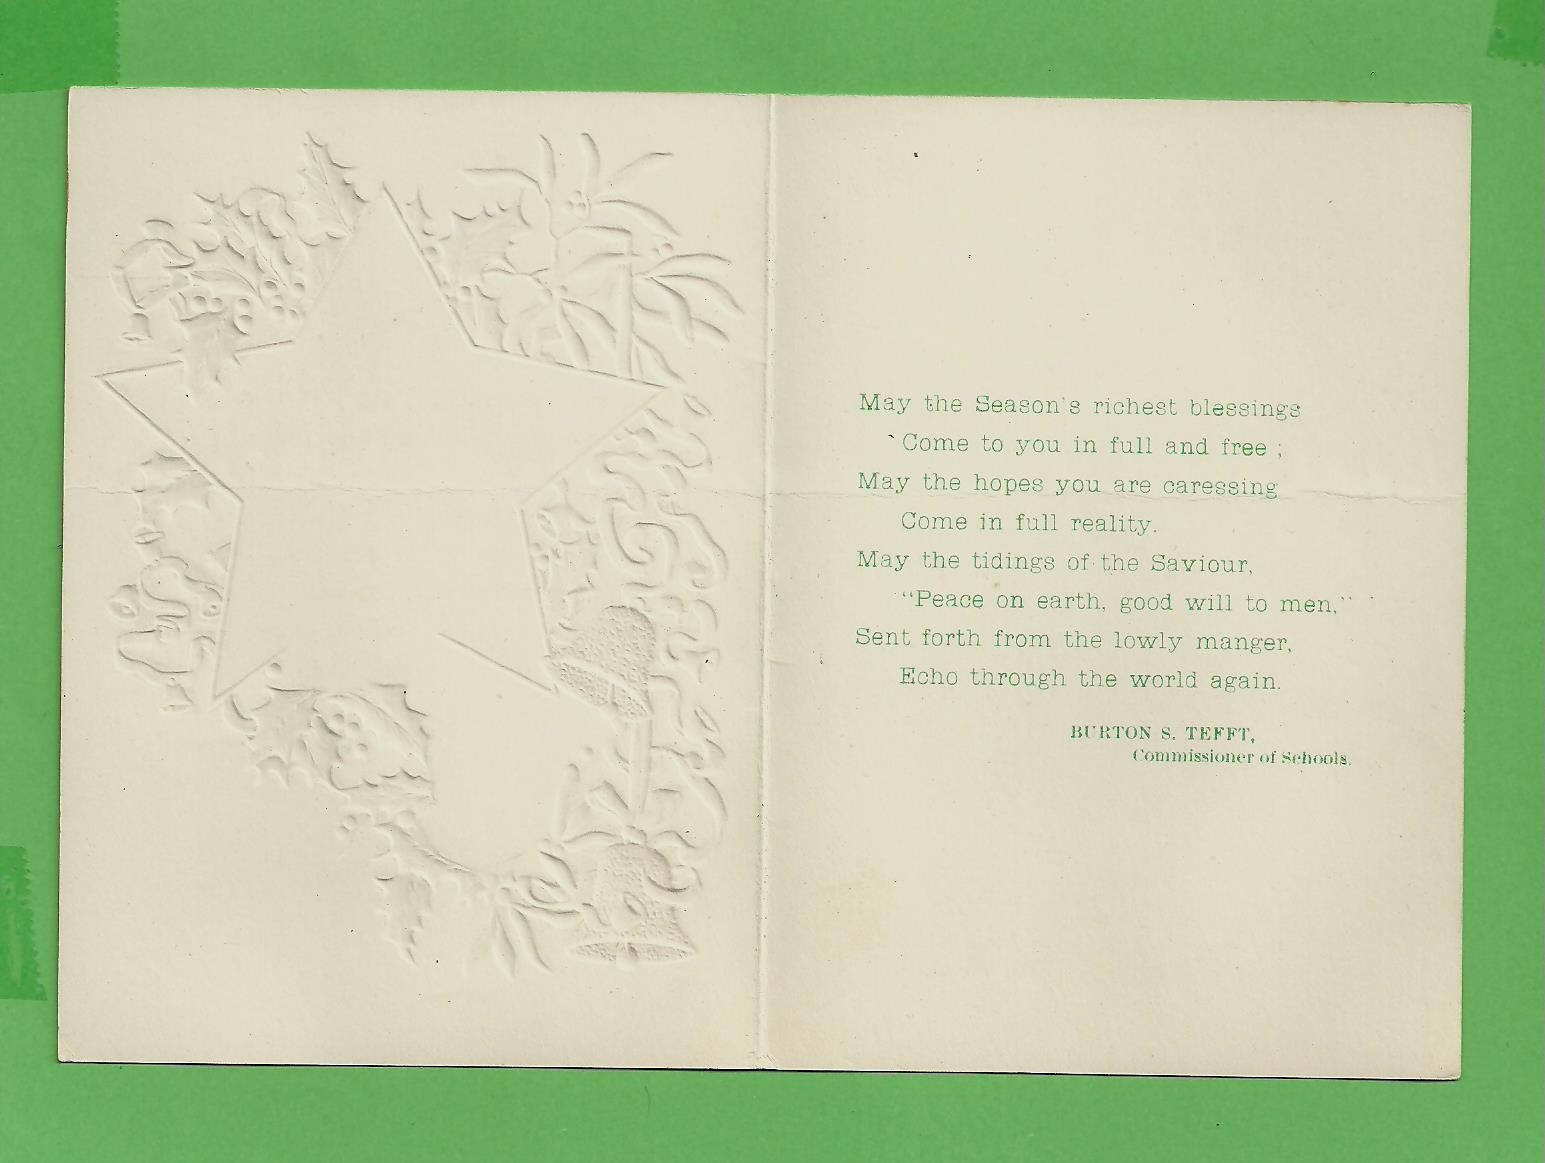 May the Season's richest blessings
Come to you in full and free ;
May the hopes you are caressing
Come in full reality.
May the tidings of the Saviour,
“Peace on earth, good will to men,”
Sent forth from the lowly manger,
Echo through the world again.
BURTON S. TEFFT,
Commissioner of Schools.